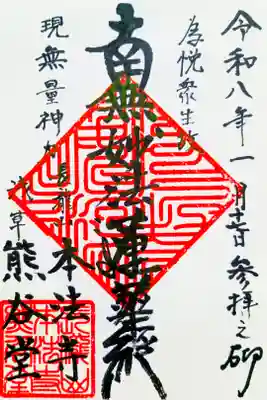 令和八年一月十七日 参拝之砌
為悦衆生故
南無妙法蓮華経
現無量神力
長瀧山
本法寺
浅草
熊谷堂